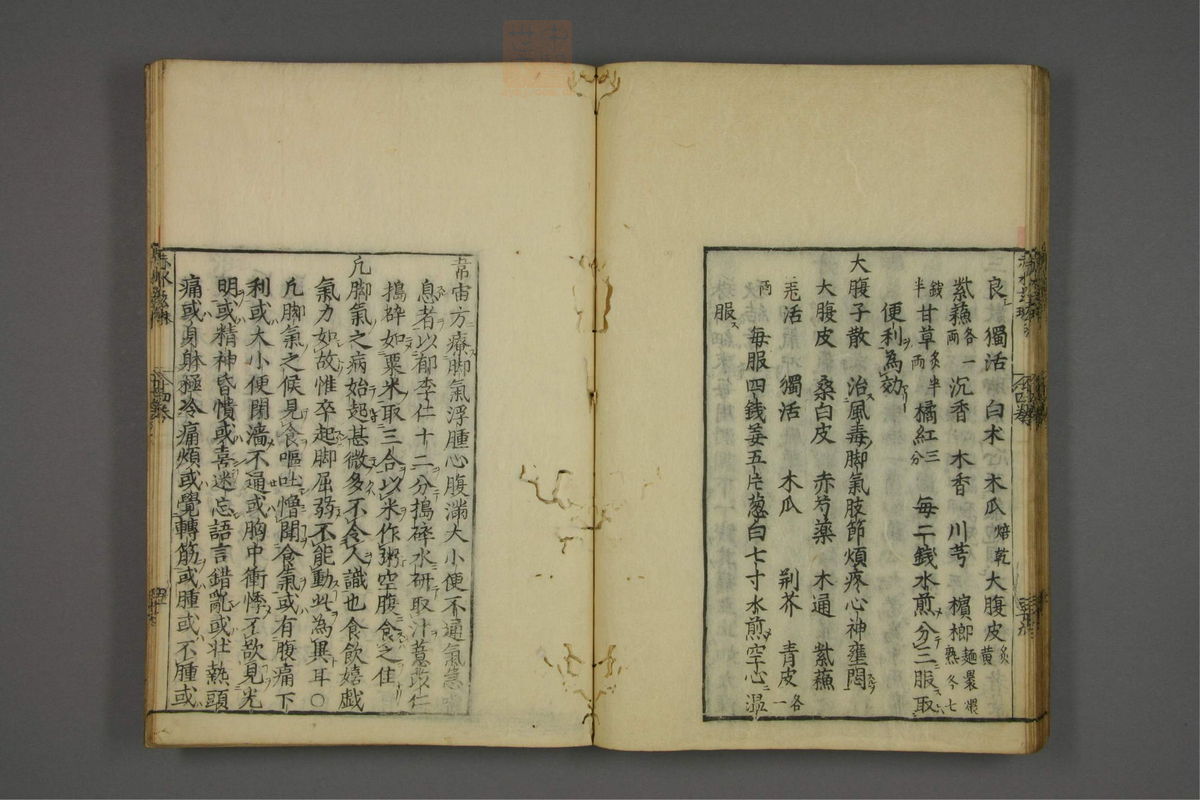 良 獨活 白朮 木瓜焙乾 大腹皮炙黄
紫蘇各一兩 沉香 木香 川芎 檳榔麺裹煨熟冬七
錢半 甘草炙半兩 橘紅三分 每二錢水煎分三服取
便利為効
大腹子散 治風毒脚氣肢節煩疼心神壅悶
大腹皮 桑白皮 赤芍藥 木通 紫蘇
羌活 獨活 木瓜 荆芥 青皮各一
兩 每服四錢姜五片葱白七寸水煎空心温
服
韋宙方療脚氣浮腫心腹滿大小便不通氣急
息者以郁李仁十二分搗碎水研取汁薏苡仁
搗碎如粟米取三合以米作粥空腹食之佳
凡脚氣之病始起甚微多不令人識也食飲嬉戯
氣力如故惟卒起脚屈弱不能動此為異耳○
凡脚氣之候見食嘔吐憎聞食氣或有腹痛下
利或大小便閉濇不通或胸中衝悸不欲見光
明或精神昏憒或喜迷忘語言錯亂或壮熱頭
痛或身躰極冷痛煩或覺轉筋或腫或不腫或